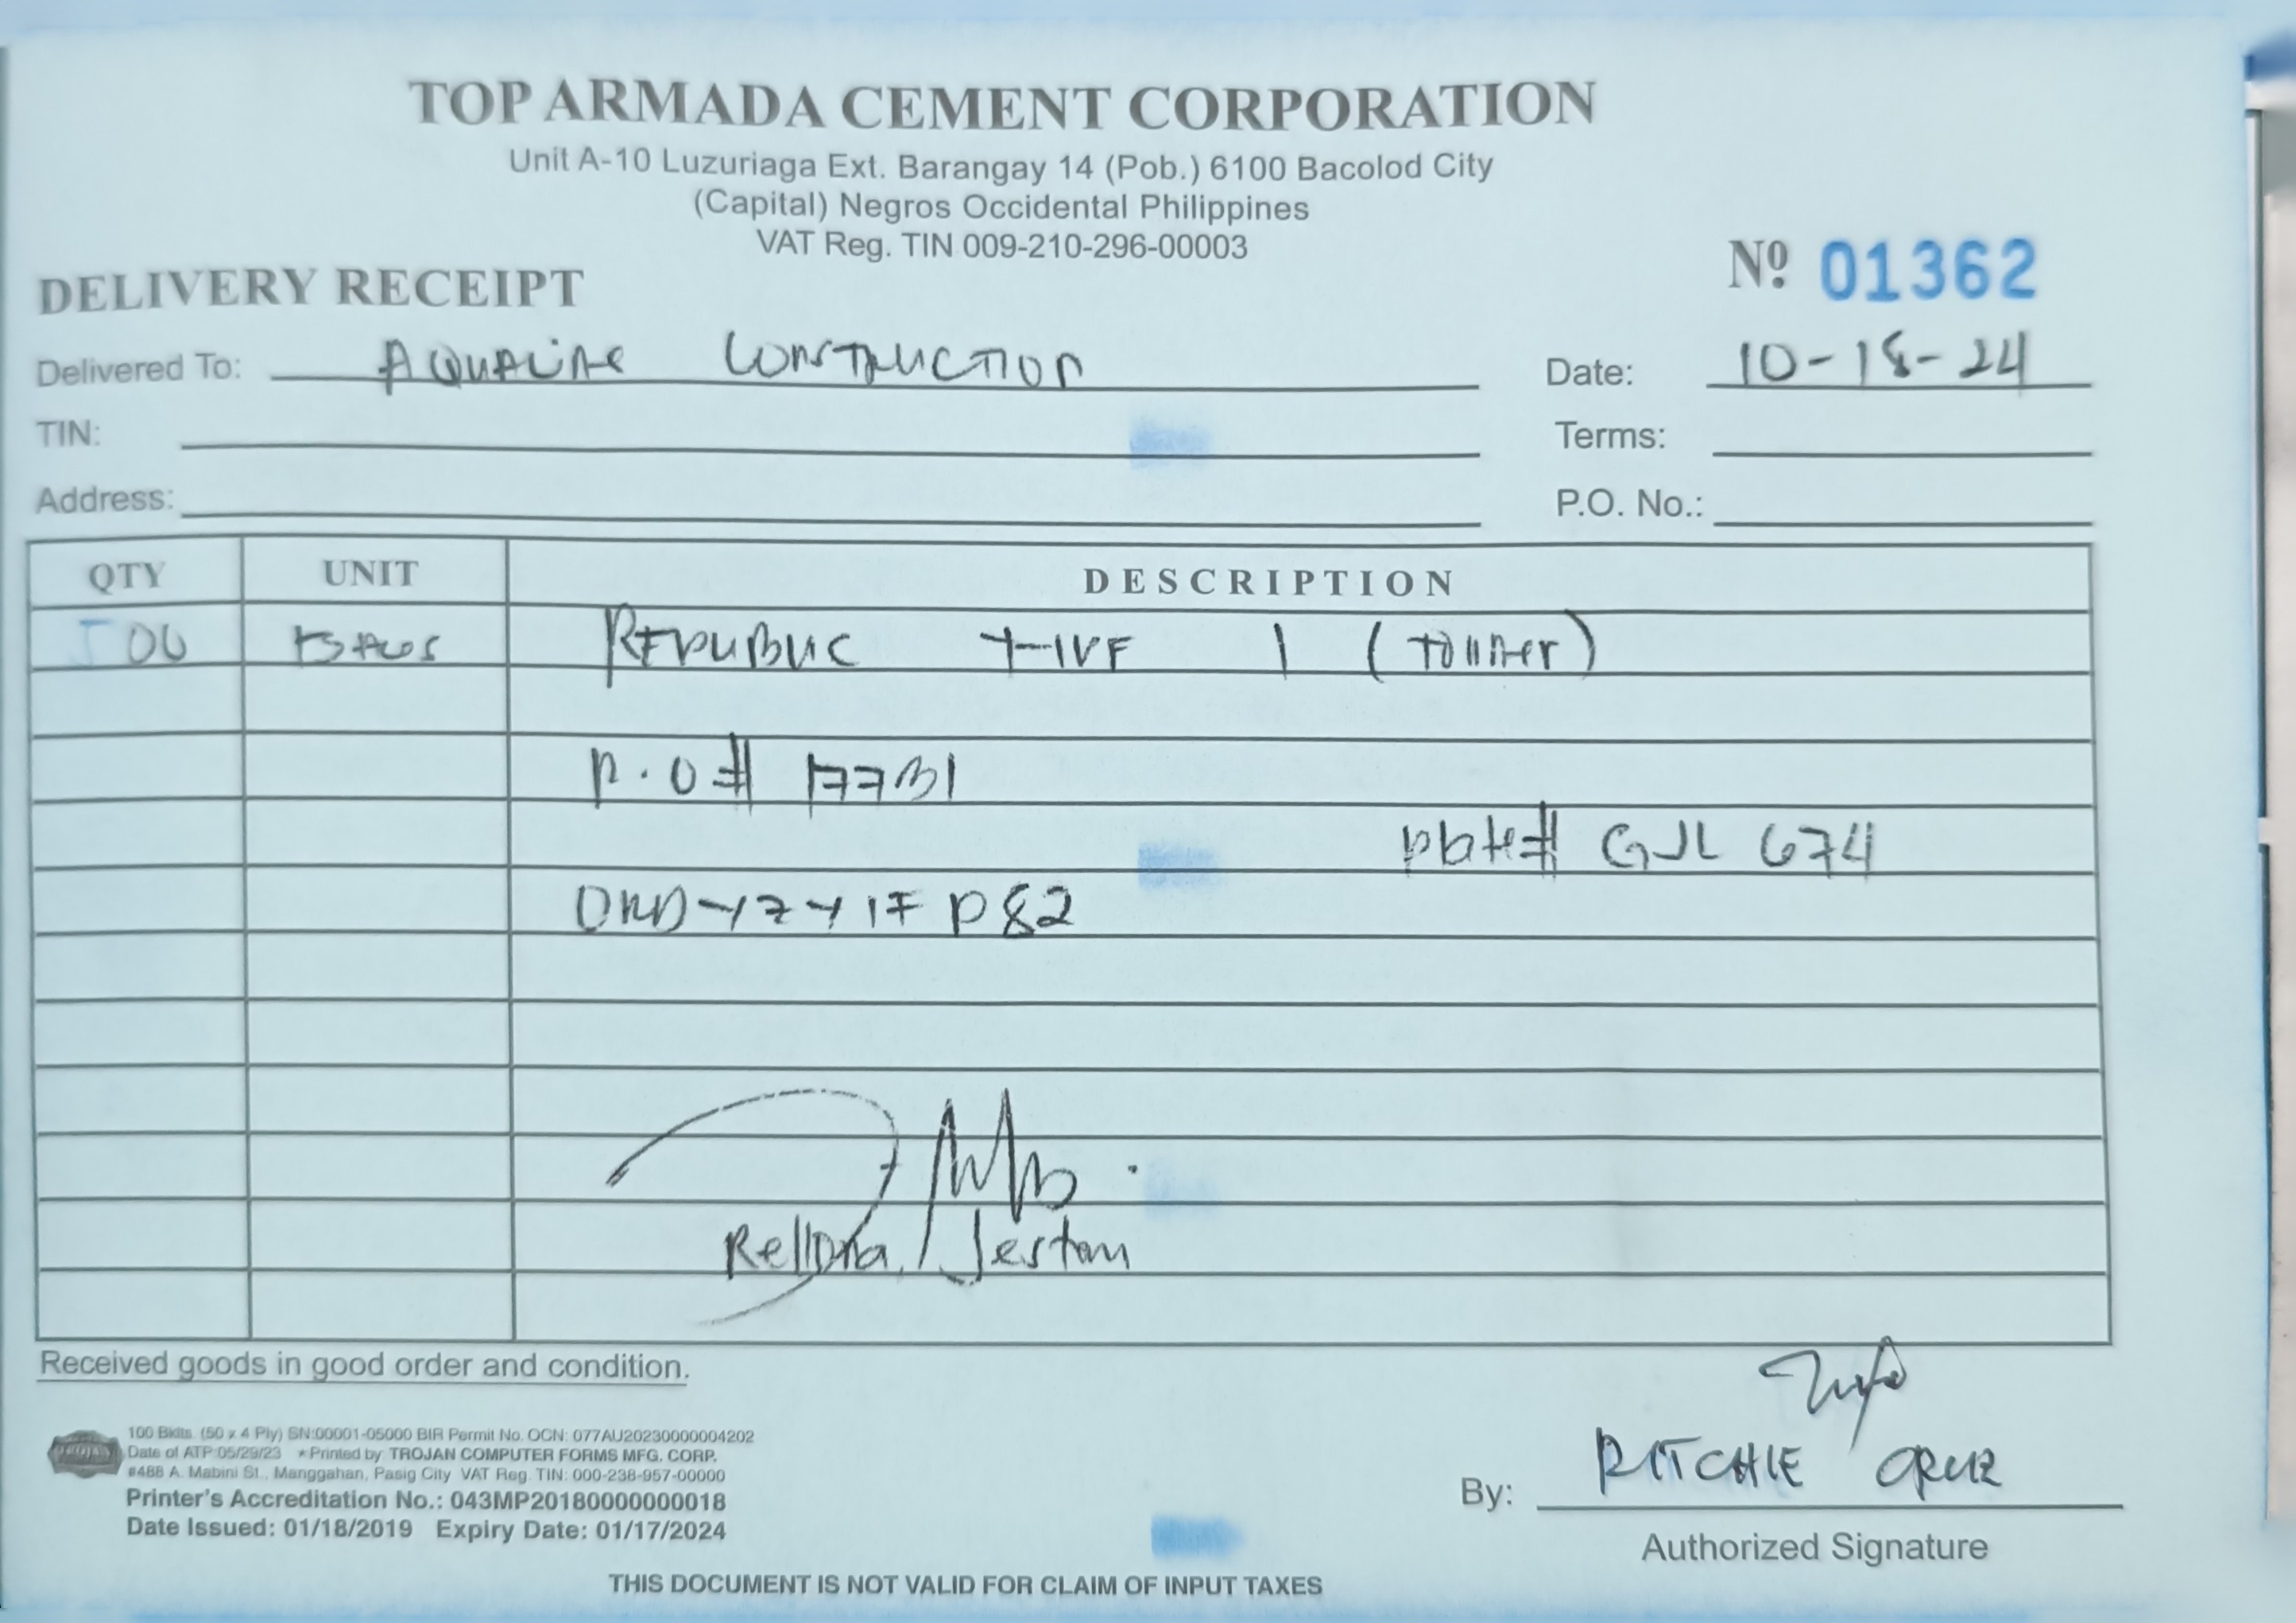 TOP ARMADA CEMENT CORPORATION
Unit A-10 Luzuriaga Ext. Barangay 14 (Pob.) 6100 Bacolod City
(Capital) Negros Occidental Philippines
VAT Reg. TIN 009-210-296-00003
DELIVERY RECEIPT
Nº 01362
Delivered To: AQUALINE CONSTRUCTION
Date: 10-18-24
TIN:
Terms:
Address:
P.O. No.:
QTY UNIT DESCRIPTION
500 BAGS REPUBLIC TYPE 1 (TONNER)
P.O# 17731
Plate# GJL 674
Rellora, Jestom
Received goods in good order and condition.
100 Bklts. (50 x 4 Ply) SN:00001-05000 BIR Permit No. OCN: 077AU20230000004202
Date of ATP:05/29/23 *Printed by: TROJAN COMPUTER FORMS MFG. CORP.
#488 A. Mabini St., Manggahan, Pasig City VAT Reg. TIN: 000-238-957-00000
Printer's Accreditation No.: 043MP20180000000018
Date Issued: 01/18/2019 Expiry Date: 01/17/2024
By: RITCHIE CRUZ
Authorized Signature
THIS DOCUMENT IS NOT VALID FOR CLAIM OF INPUT TAXES